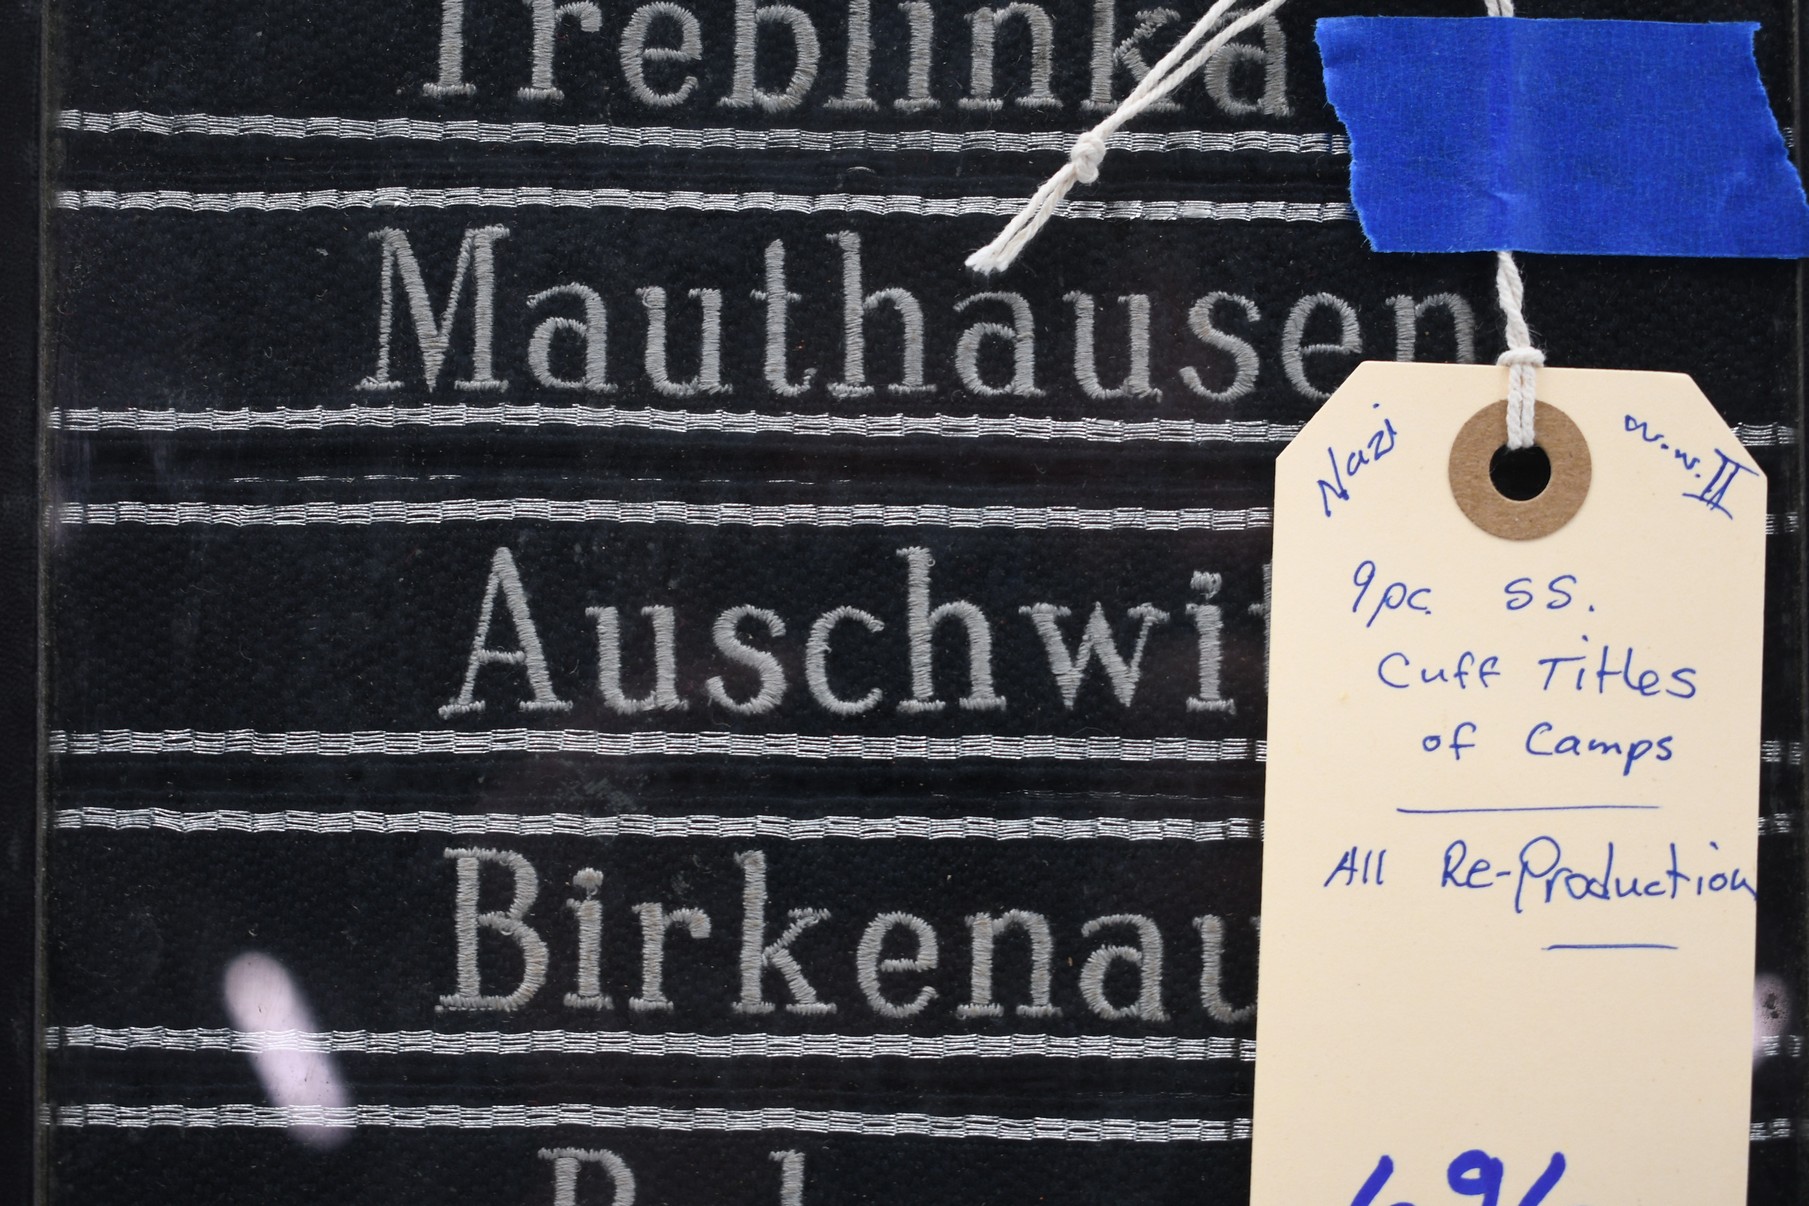 Treblinka
Mauthausen
Auschwit
Birkenau
Nazi
W.W.II
9pc SS.
Cuff Titles
of Camps
All Re-Production